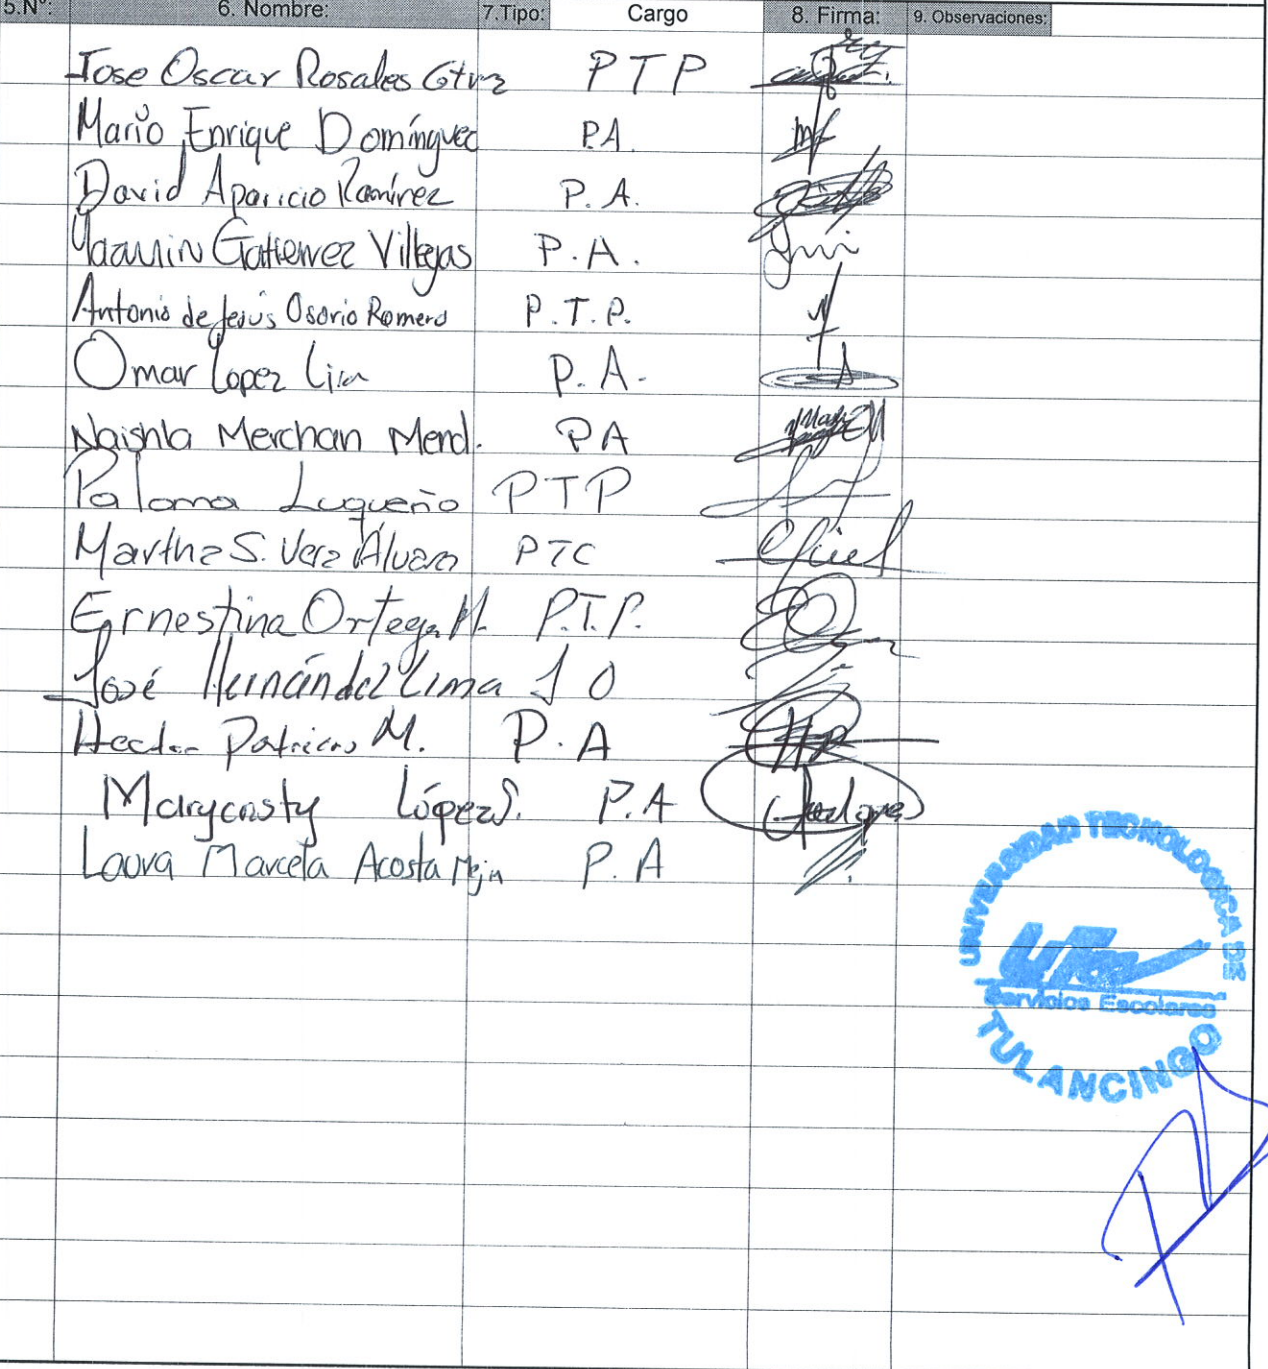 5.N°: 6. Nombre: 7.Tipo: Cargo 8. Firma: 9. Observaciones:
Jose Oscar Rosales Gtrz PTP
Mario Enrique Domínguez P.A.
David Aparicio Ramírez P. A.
Yazmin Gutierrez Villegas P.A.
Antonio de Jesús Osorio Romero P.T.P.
Omar Lopez Lira P. A.
Naishla Merchan Mend. PA
Paloma Luqueño PTP
Martha S. Vera Álvarez PTC
Ernestina Ortega M. P.T.P.
José Hernández Lima J O
Hector Patricio M. P.A
Marycasty López S. P.A
Laura Marcela Acosta Mejia P.A
UNIVERSIDAD TECNOLOGICA DE
UTec
Servicios Escolares
TULANCINGO